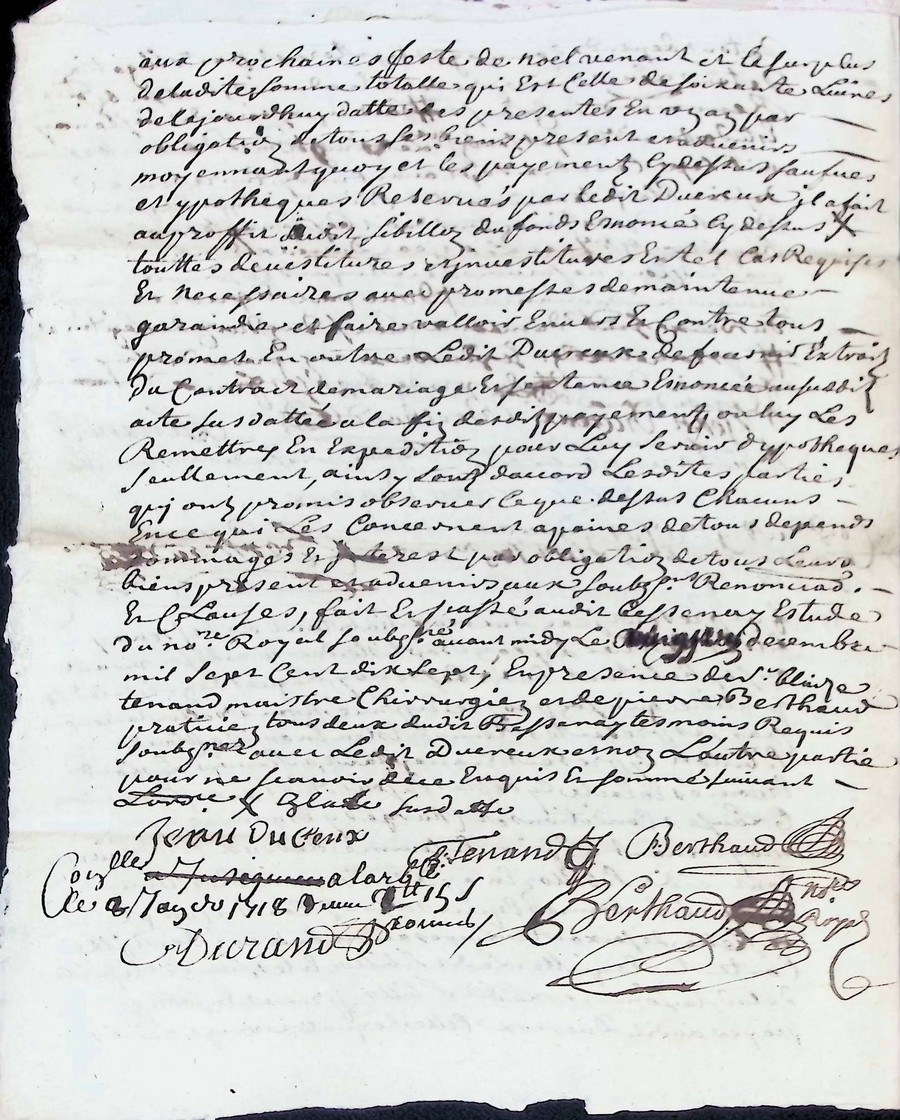 aux prochaines feste de noel venant et le surplus
de ladite somme totalle qui Est Celle de soixante Livres
de Cejourdhuy datte des presentes En ... par
obligation de tous ses biens present et advenirs
moyennant quoy et les payements Cy dessus saufues
et ypotheques Reserués par ledit Ducreux il a fait
au proffit dudit Sibillez du fonds Enoncé Cy dessus X
touttes deuestitures et Jnvestitures En tel Cas Requises
Et Necessaires avec promesses de maintenue
garandir et faire valloir Enuers Et Contre tous
promet En outre Ledit Ducreux de fournir Extrait
du Contract de mariage Et sentence Enoncée au susdit
acte sus datté a la fin desdits payements ou luy Les
Remettre En Expedition pour Luy seruir d'ypotheques
seullement, ainsy sont d'accord Lesdites parties
qui ont promis obseruer Ce que dessus Chacuns
En ce qui Les Concernent a paines de tous depends
dommages Et Jnterest par obligation de tous Leurs
biens present et advenirs, aux soubzons Renonciaons
Et Clauses, fait Et passé audit Bessenay Estude
du nore Royal soubzgné avant midy Le decembre
mil sept Cent dix sept, En presence de Sr blaize
tenand maistre Chirurgien et de pierre Berthaud
praticien tous deux dudit Bessenay tesmoins Requis
soubzgnez avec Ledit Ducreux et non L'autre partie
pour ne scauoir de ce Enquis Et sommé suiuant
Lordce X a la susdatte
Jean Ducreux
B. Tenand Berthaud
Conlle a Larbrelle
le 8 May 1718
Berthaud nore Royal
Durand